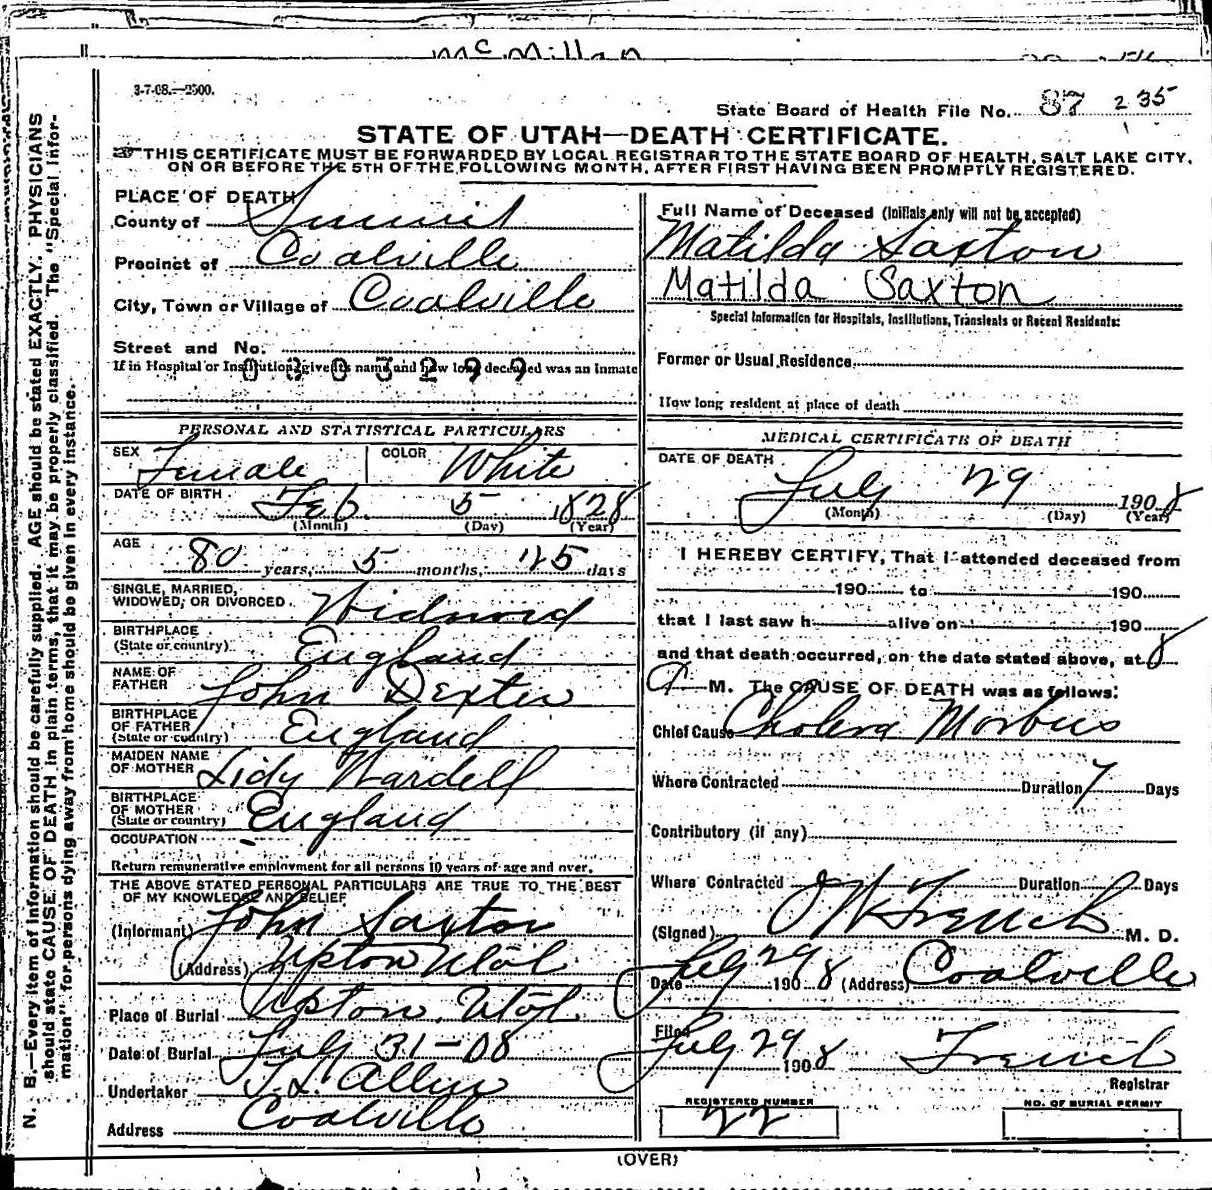 Mc Millan
3-7-08.—2500.
State Board of Health File No. 87 235
STATE OF UTAH—DEATH CERTIFICATE.
THIS CERTIFICATE MUST BE FORWARDED BY LOCAL REGISTRAR TO THE STATE BOARD OF HEALTH, SALT LAKE CITY,
ON OR BEFORE THE 5TH OF THE FOLLOWING MONTH, AFTER FIRST HAVING BEEN PROMPTLY REGISTERED.
PLACE OF DEATH
County of Summit
Precinct of Coalville
City, Town or Village of Coalville
Street and No.
If in Hospital or Institution, give its name and how long deceased was an Inmate
0303299
Full Name of Deceased (Initials only will not be accepted)
Matilda Saxton
Matilda Saxton
Special Information for Hospitals, Institutions, Transients or Recent Residents:
Former or Usual Residence
How long resident at place of death
PERSONAL AND STATISTICAL PARTICULARS
SEX Female COLOR White
DATE OF BIRTH Feb. 5 1828
(Month) (Day) (Year)
AGE 80 years, 5 months, 25 days
SINGLE, MARRIED,
WIDOWED, OR DIVORCED. Widowed
BIRTHPLACE
(State or country) England
NAME OF
FATHER John Dexter
BIRTHPLACE
OF FATHER
(State or country) England
MAIDEN NAME
OF MOTHER Lidy Wardell
BIRTHPLACE
OF MOTHER
(State or country) England
OCCUPATION
Return remunerative employment for all persons 10 years of age and over.
THE ABOVE STATED PERSONAL PARTICULARS ARE TRUE TO THE BEST
OF MY KNOWLEDGE AND BELIEF
(Informant) John Saxton
(Address) Upton Utah
Place of Burial Upton, Utah
Date of Burial July 31-08
Undertaker T. L. Allen
Address Coalville
MEDICAL CERTIFICATE OF DEATH
DATE OF DEATH
July 29 1908
(Month) (Day) (Year)
I HEREBY CERTIFY, That I attended deceased from
190 to 190
that I last saw h alive on 190
and that death occurred, on the date stated above, at 8
A M. The CAUSE OF DEATH was as follows:
Chief Cause Cholera Morbus
Where Contracted Duration 7 Days
Contributory (if any)
Where Contracted Duration Days
(Signed) French M. D.
Date July 29 1908 (Address) Coalville
Filed
July 29 1908 French
Registrar
REGISTERED NUMBER
22
NO. OF BURIAL PERMIT
(OVER)
N. B.—Every item of information should be carefully supplied. AGE should be stated EXACTLY. PHYSICIANS
should state CAUSE OF DEATH in plain terms, that it may be properly classified. The "Special Infor-
mation" for persons dying away from home should be given in every instance.